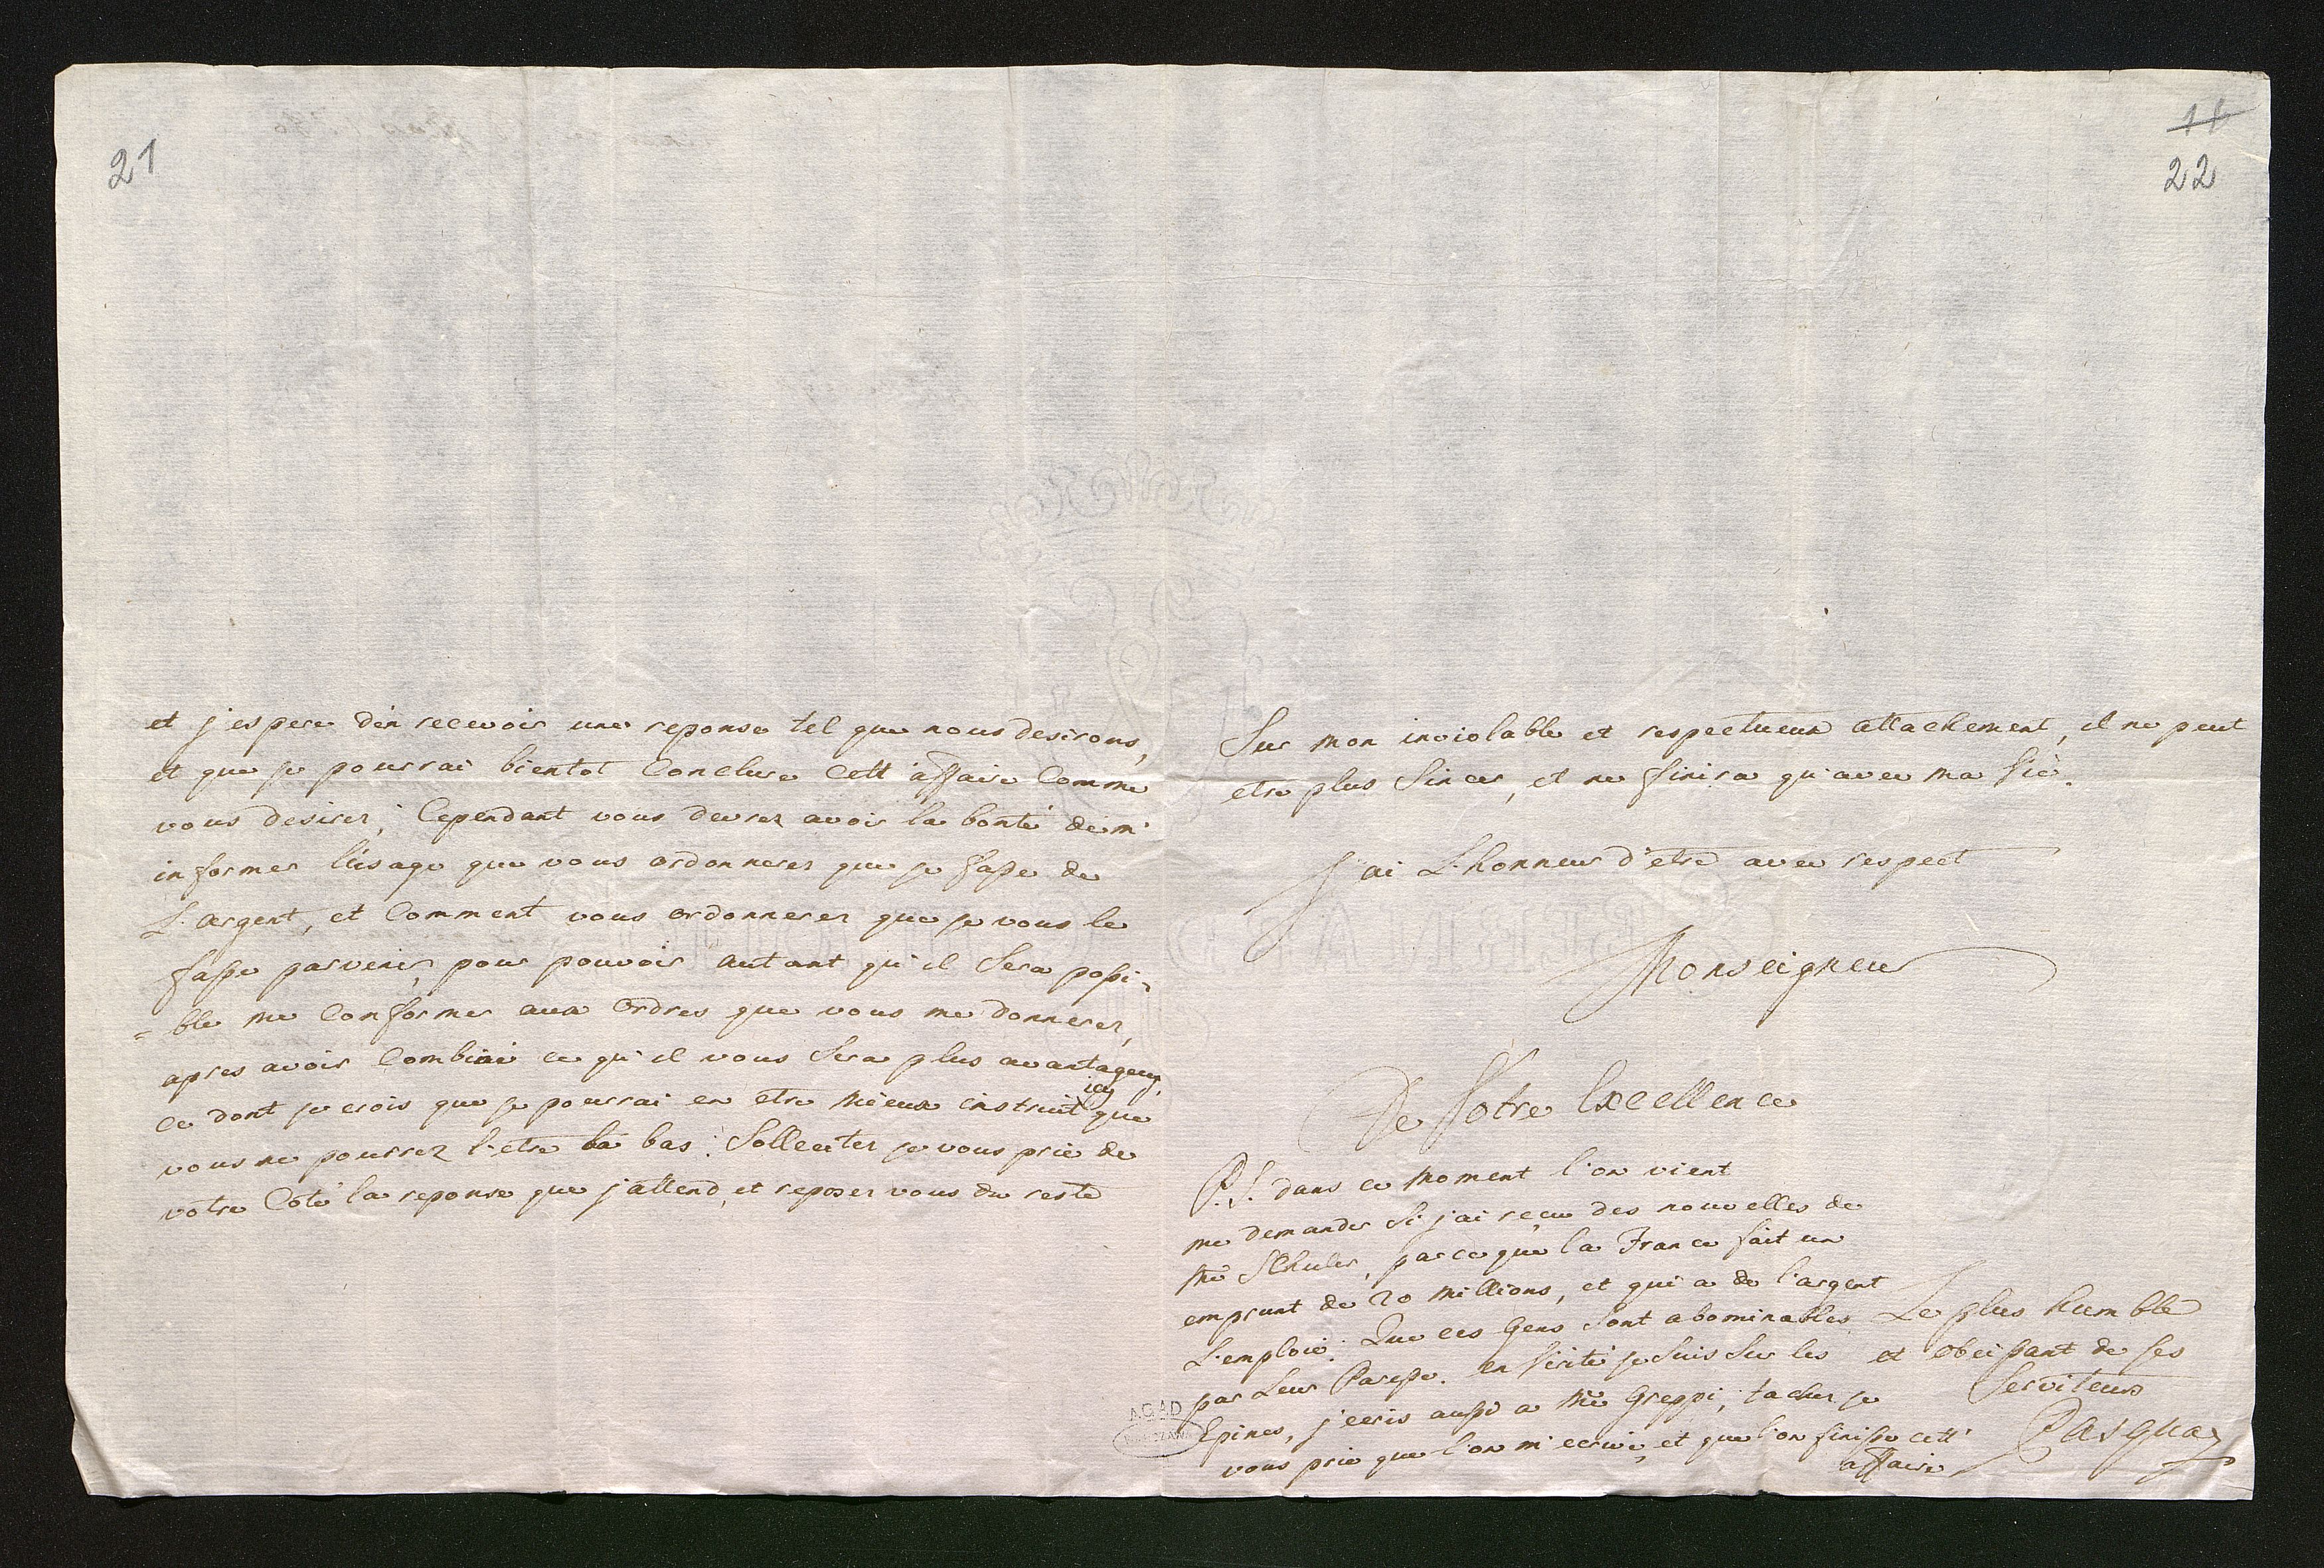 21
et j'espere d'en recevoir une reponse tel que nous desirons,
et que je pourrai bientot Conclure Cett'affaire Comme
vous desirez; Cependant vous devrez avoir la bonté de m'
informer l'usage que vous ordonnerez que je fasse de
L'argent, et Comment vous ordonnerez que je vous le
fasse parvenir, pour pouvoir autant qu'il Sera possi-
=ble me Conformer aux Ordres que vous me donnerez,
apres avoir Combiné ce qu'il vous Sera plus avantageux,
ce dont je crois que je pourrai en etre mieux instruit icy que
vous ne pourrez l'etre la bas: Sollecitez je vous prie de
votre Coté la reponse que j'attend, et reposez vous du reste
11
22
Sur mon inviolable et respectueux attachement, il ne peut
etre plus Sincer, et ne finira qu'avec ma Vie.
J'ai L'honneur d'etre avec respect
Monseigneur
De Votre Excellence
P.S. dans ce moment l'on vient
me demander Si j'ai reçu des nouvelles de
Mr Schuler, parce que la France fait un
emprunt de 20 Millions, et qui a de l'argent
L'emploie: Que ces Gens Sont abominables
par Leur Paresse. en Verité je Suis Sur les
Epines, j'ecris aussi a Mr Greppi, tachez je
vous prie que l'on m'ecrive, et que l'on finisse cett'
affaire
Le plus humble
et obeissant de ses
Serviteurs
Pasquay
AGAD
WARSZAWA